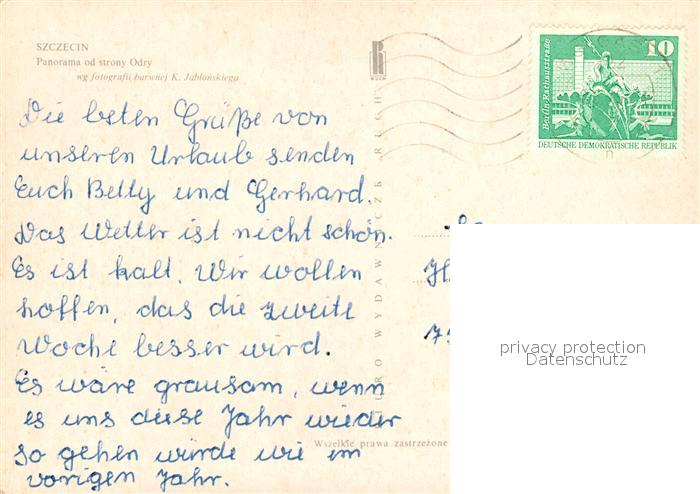 SZCZECIN
Panorama od strony Odry
wg fotografii barwnej K. Jabłońskiego
10
Berlin-Rathausstraße
DEUTSCHE DEMOKRATISCHE REPUBLIK
Die besten Grüße von
unseren Urlaub senden
Euch Betty und Gerhard.
Das Wetter ist nicht schön.
Es ist kalt. Wir wollen
hoffen, das die zweite
Woche besser wird.
Es wäre grausam, wenn
es uns diese Jahr wieder
so gehen würde wie im
vorigen Jahr.
RUCH
Wszelkie prawa zastrzeżone
privacy protection
Datenschutz